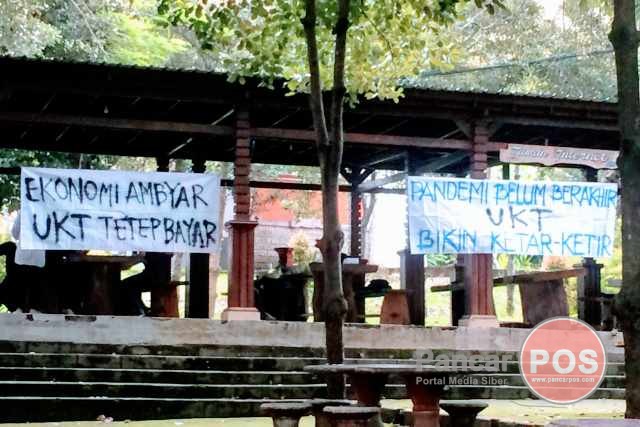 EKONOMI AMBYAR
UKT TETEP BAYAR
PANDEMI BELUM BERAKHIR
UKT
BIKIN KETAR-KETIR
Taman Internet
Pancar POS
Portal Media Siber
www.pancarpos.com